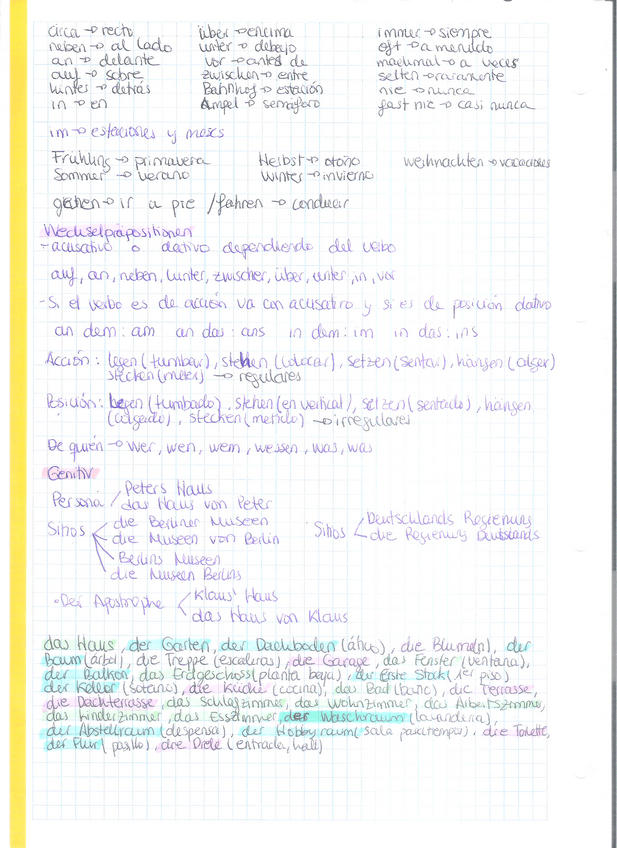 circa → recto über → encima immer → siempre
neben → al lado unter → debajo oft → a menudo
an → delante vor → antes de machmal → a veces
auf → sobre zwischen → entre selten → raramente
hinter → detrás Bahnhof → estación nie → nunca
in → en Ampel → semáforo fast nie → casi nunca
im → estaciones y meses
Frühling → primavera Herbst → otoño weihnachten → vacaciones
Sommer → verano Winter → invierno
gehen → ir a pie / fahren → conducir
Wechselpräpositionen
- acusativo o dativo dependiendo del verbo
auf, an, neben, hinter, zwischer, über, unter, in, vor
- Si el verbo es de acción va con acusativo y si es de posición dativo
an dem: am an das: ans in dem: im in das: ins
Acción: legen (tumbar), stehen (colocar), setzen (sentar), hängen (colgar)
stecken (meter) → regulares
Posición: legen (tumbado), stehen (en vertical), setzen (sentado), hängen
(colgado), stecken (metido) → irregulares
De quién → wer, wen, wem, wessen, was, was
Genitiv
Persona Peters Haus
das Haus von Peter
Sitios die Berliner Museen
die Museen von Berlin
Berlins Museen
die Museen Berlins
Sitios Deutschlands Regierung
die Regierung Deutslands
• Der Apostrophe Klaus' Haus
das Haus von Klaus
das Haus, der Garten, der Dachboden (ático), die Blume(n), der
Baum (árbol), die Treppe (escaleras), die Garage, das Fenster (ventana),
der Balkon, das Erdgeschoss (planta baja), der Erste Stock (1er piso)
der Keller (sótano), die Küche (cocina), das Bad (baño), die Terrasse,
die Dachterrasse, das Schlafzimmer, das Wohnzimmer, das Arbeitszimmer,
das Kinderzimmer, das Esszimmer, der Waschraum (lavandería),
der Abstellraum (despensa), der Hobbyraum (sala pasatiempos), die Toilette,
der Flur (pasillo), die Diele (entrada, hall)